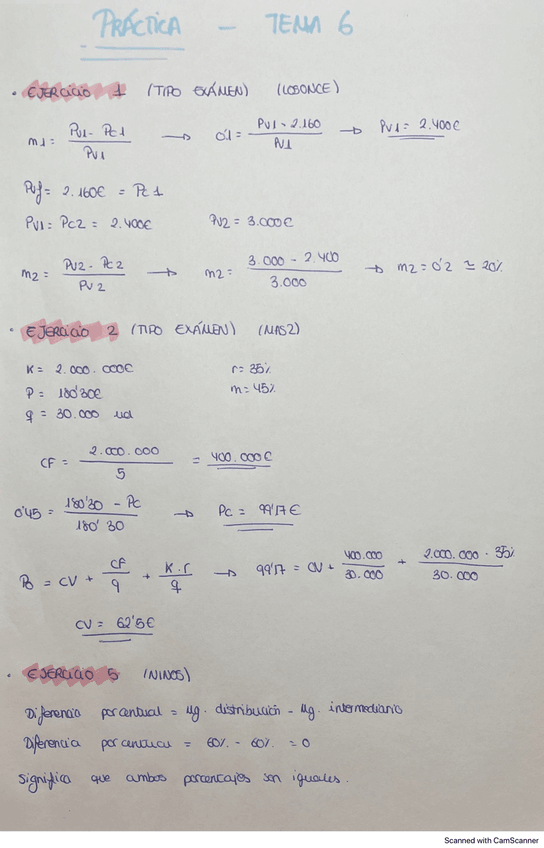 PRÁCTICA - TEMA 6
• EJERCICIO 1 (TIPO EXÁMEN) (LOBONCE)
m1 = (Pv1 - Pc1) / Pv1 → 0'1 = (Pv1 - 2.160) / Pv1 → Pv1 = 2.400€
Pvf = 2.160€ = Pc1
Pv1 = Pc2 = 2.400€ Pv2 = 3.000€
m2 = (Pv2 - Pc2) / Pv2 → m2 = (3.000 - 2.400) / 3.000 → m2 = 0'2 ≃ 20%
• EJERCICIO 2 (TIPO EXÁMEN) (MAS2)
K = 2.000.000€ r = 35%
P = 180'30€ m = 45%
q = 30.000 ud
CF = 2.000.000 / 5 = 400.000€
0'45 = (180'30 - Pc) / 180'30 → Pc = 99'17€
Po = CV + CF/q + K.r/q → 99'17 = CV + 400.000/30.000 + 2.000.000 · 35% / 30.000
CV = 62'5€
• EJERCICIO 5 (NINOS)
Diferencia porcentual = Mg. distribución - Mg. intermediario
Diferencia porcentual = 60% - 60% = 0
Significa que ambos porcentajes son iguales.
Scanned with CamScanner